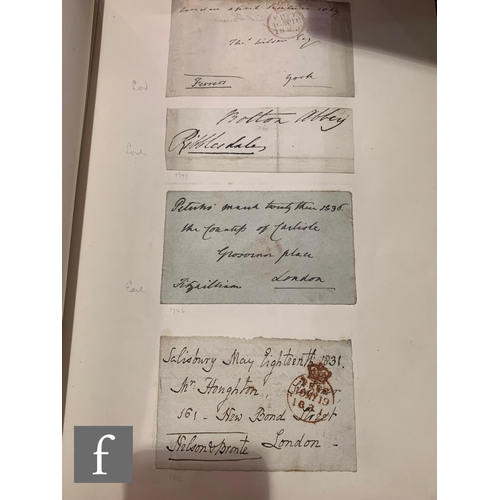 London April
Thos Wilson Esq
Ferrers York
Earl
Bolton Abbey
Lord
Ribblesdale
1797
Petworth march twenty three 1836.
the Countess of Carlisle
Grosvenor place
Fitzwilliam London
Earl
1746
Salisbury May Eighteenth 1831,
Mr. Houghton,
161 - New Bond Street
Nelson & Bronte London -
FREE
19 MY 19
f